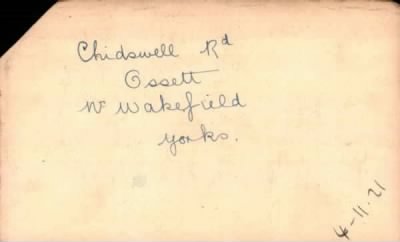 Chidswell Rd
Ossett
Nr Wakefield
Yorks.
4-11.21